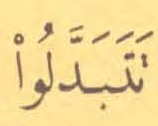 تَتَبَدَّلُواْ